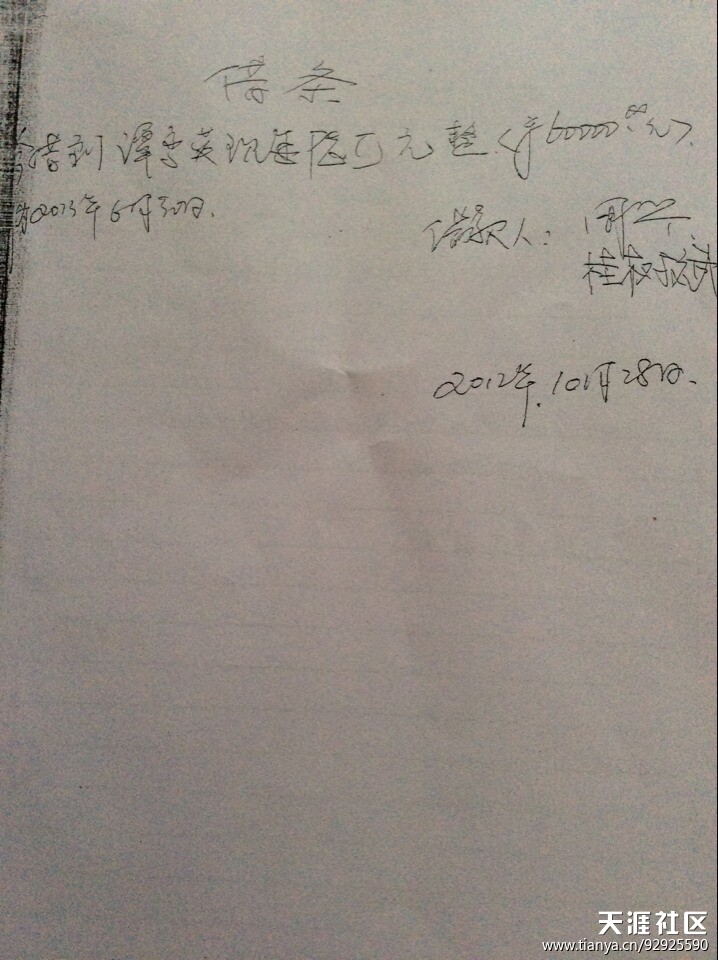 借条
今借到谭秀英现金陆万元整(¥60000.00元).
为2013年6月30日.
借款人: 周兴
桂权斌
2012年.10月28日.
天涯社区
www.tianya.cn/92925590